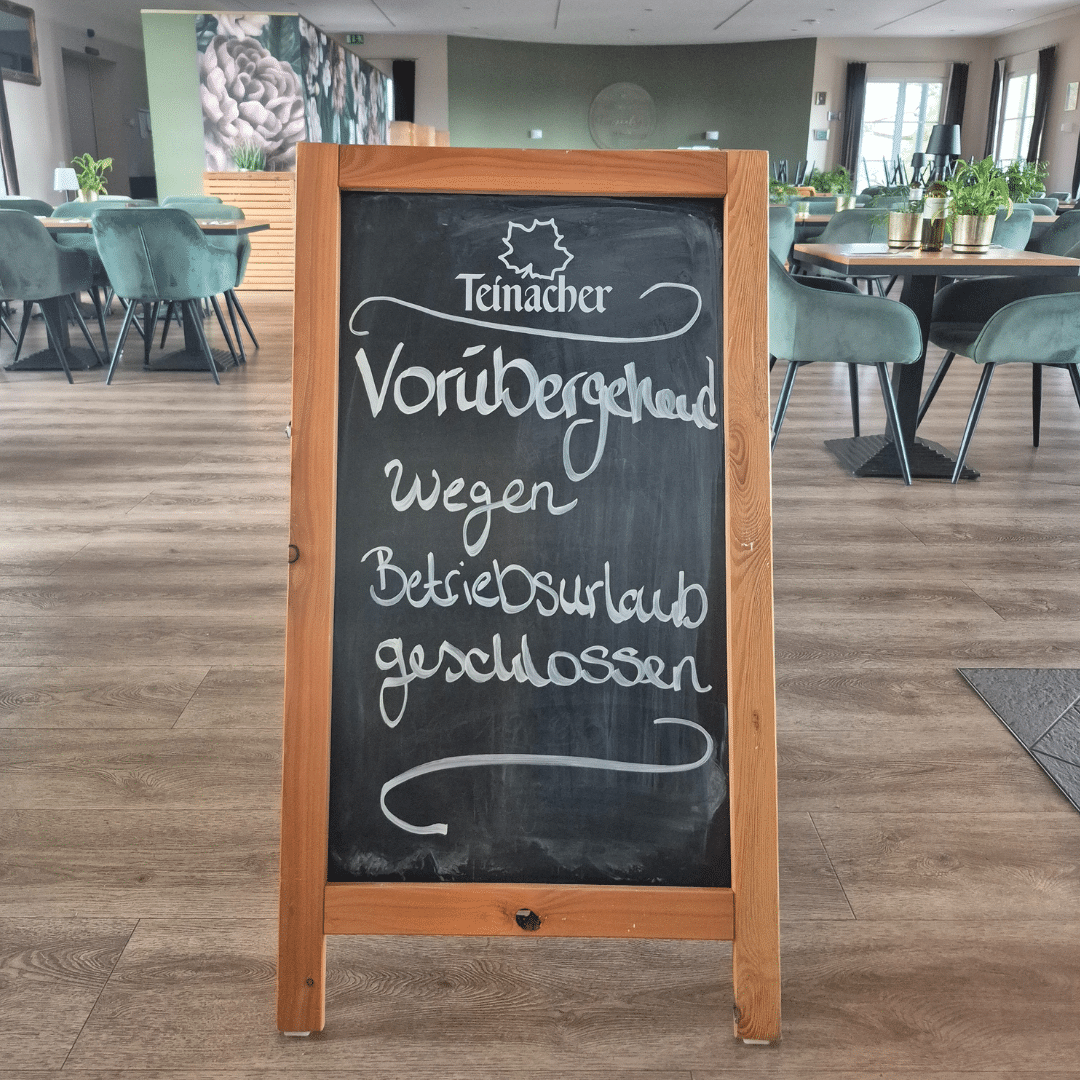 Teinacher
Vorübergehend
Wegen
Betriebsurlaub
geschlossen